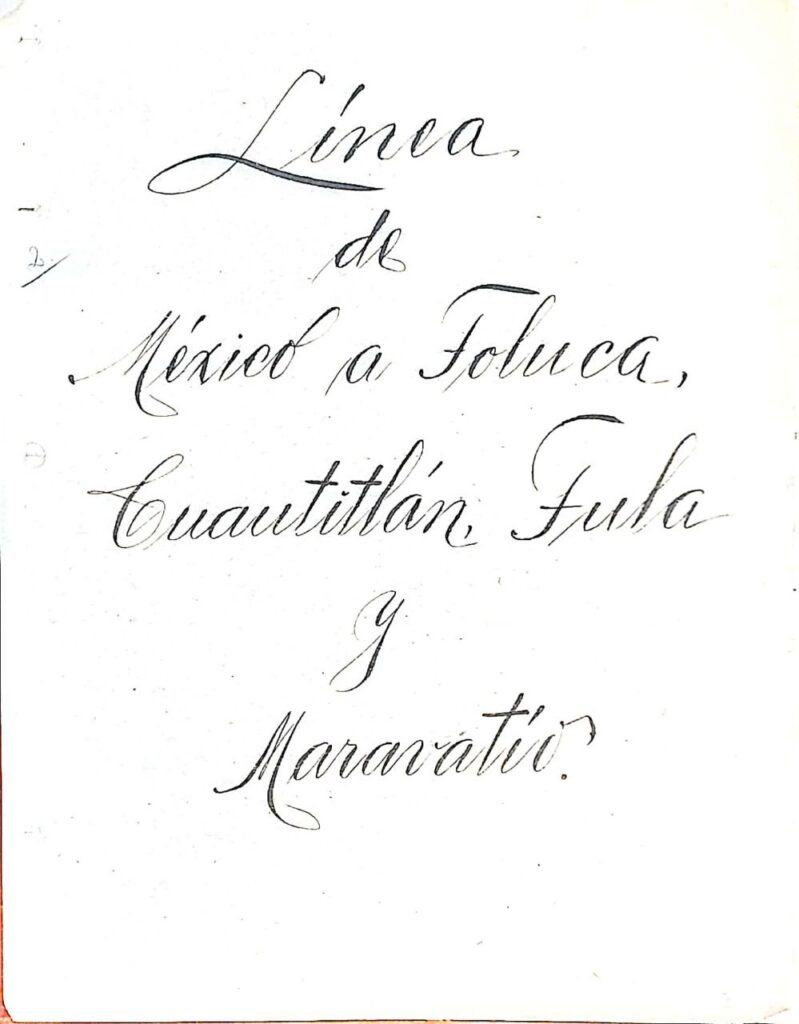 Línea
de
México a Toluca,
Cuautitlán, Tula
y
Maravatío.
2